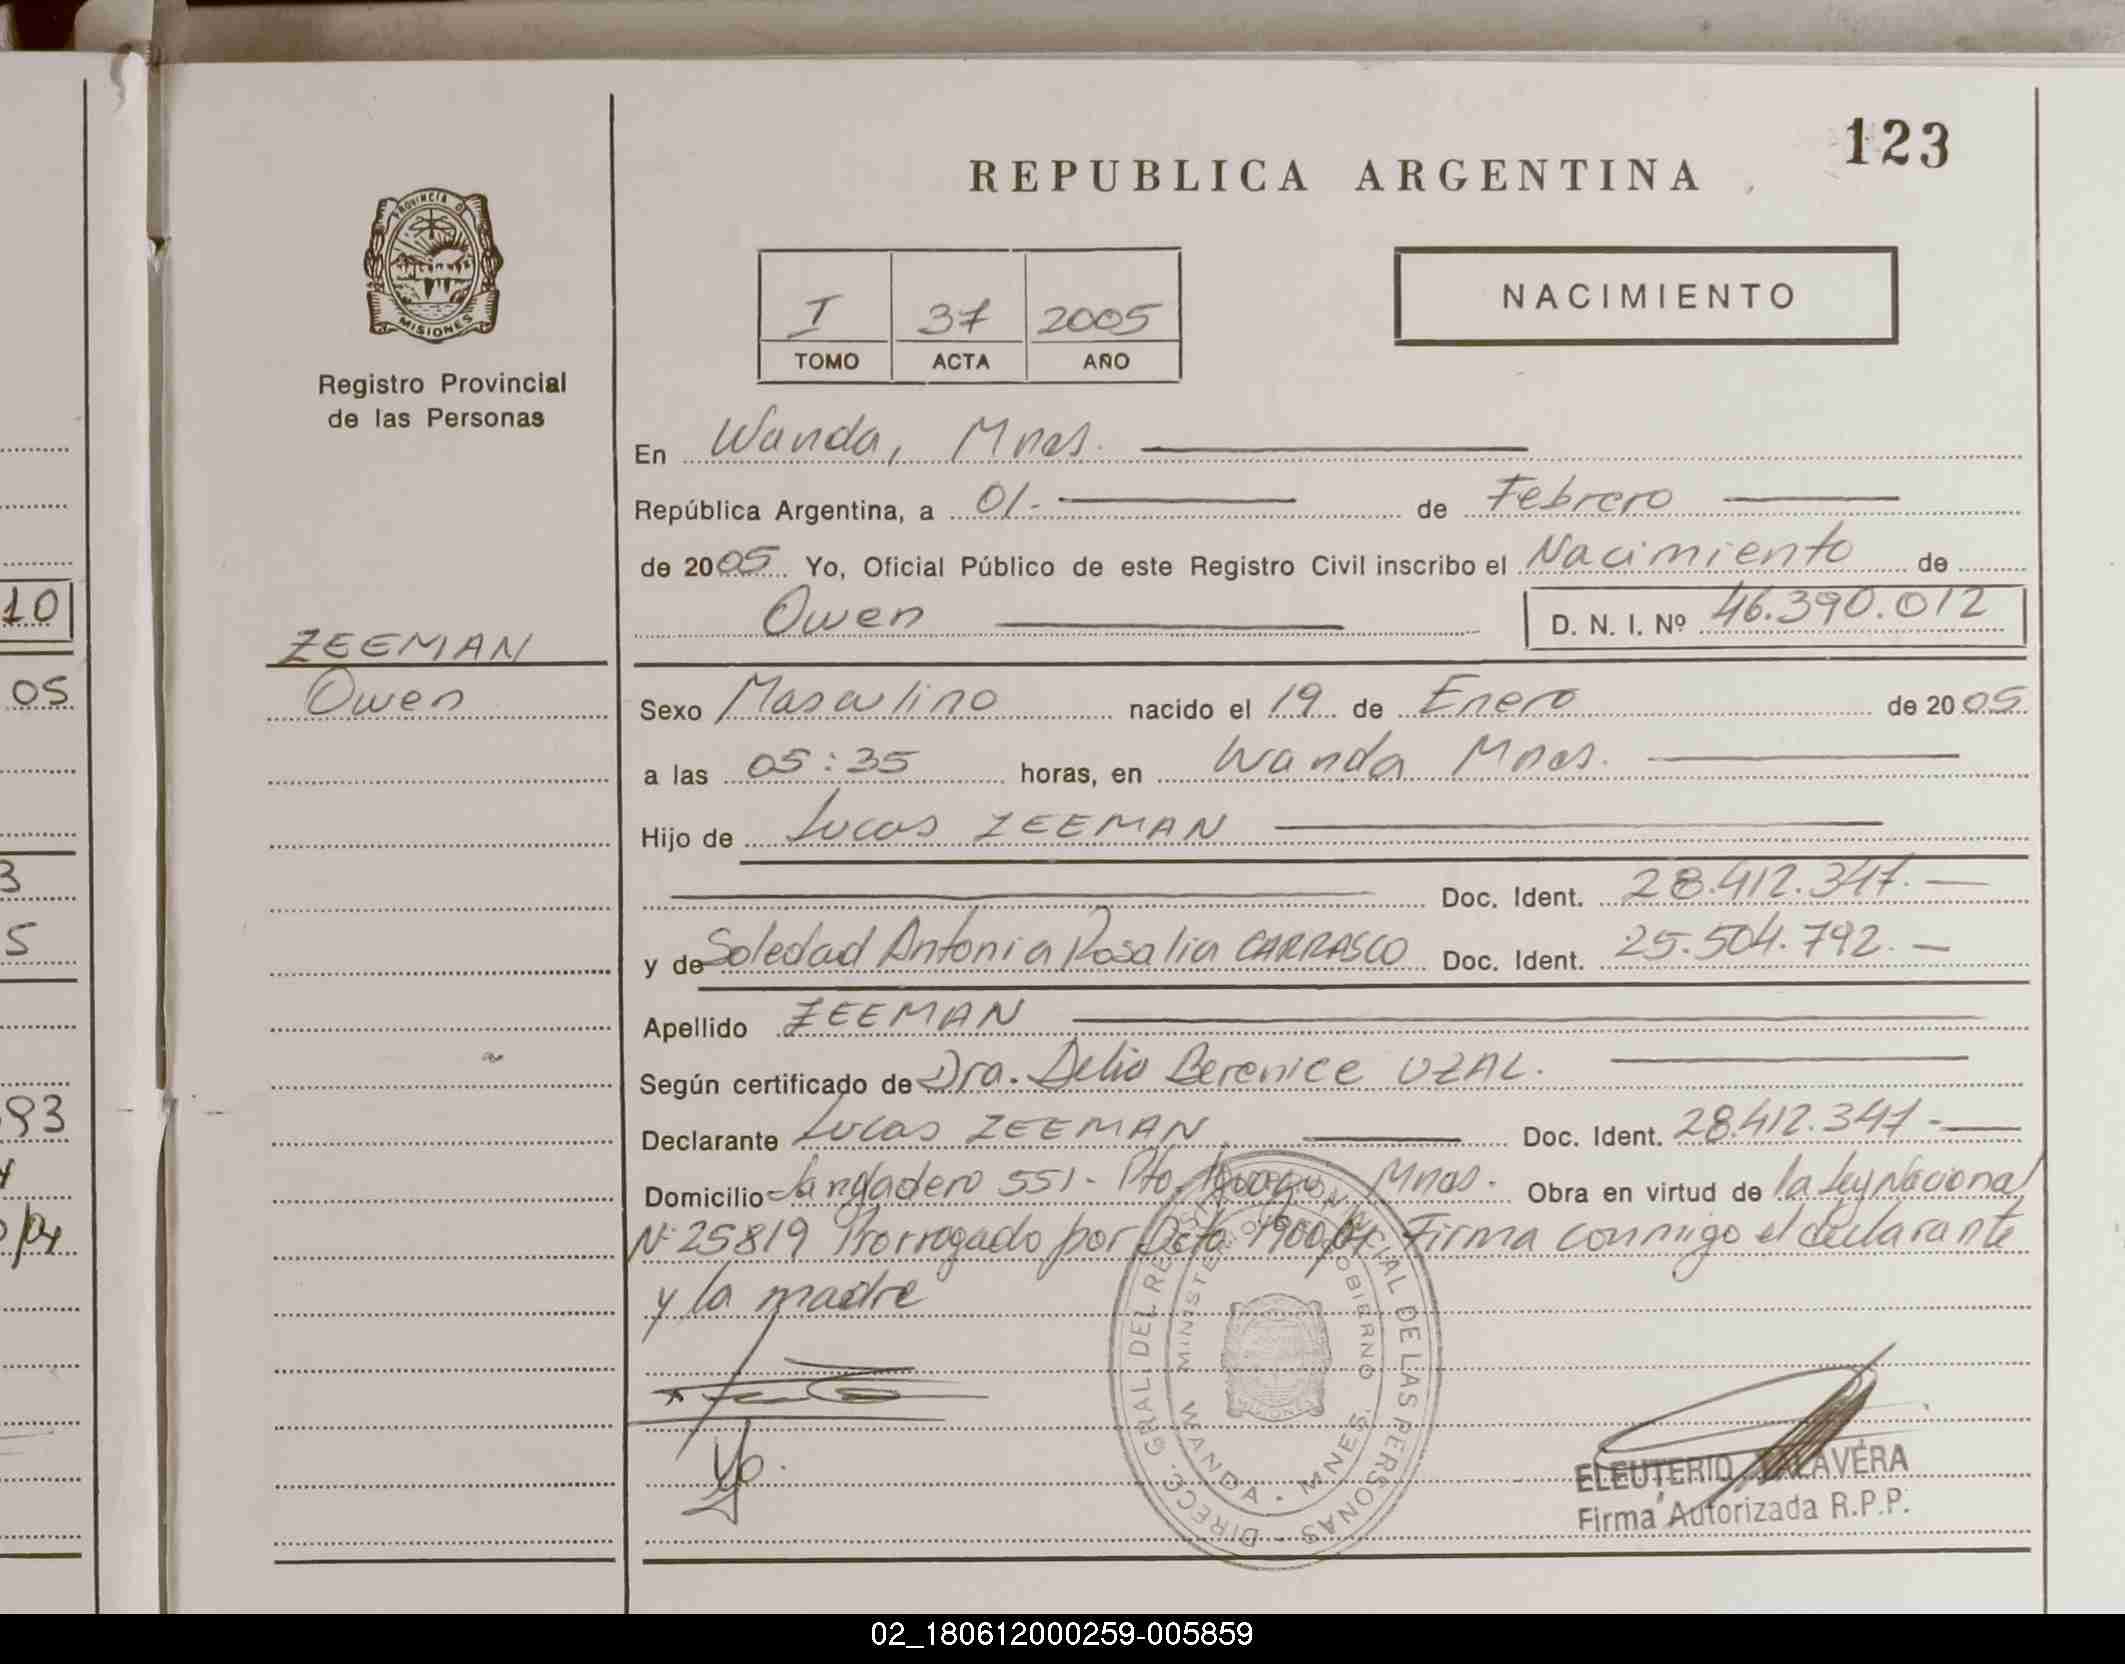 123
REPUBLICA ARGENTINA
PROVINCIA D
MISIONES
Registro Provincial
de las Personas
I 37 2005
TOMO ACTA AÑO
NACIMIENTO
En Wanda, Mnes.
República Argentina, a 01.- de Febrero
de 2005 Yo, Oficial Público de este Registro Civil inscribo el Nacimiento de
Owen D. N. I. Nº 46.390.012
ZEEMAN
Owen
Sexo Masculino nacido el 19 de Enero de 2005
a las 05:35 horas, en Wanda Mnes.
Hijo de Lucas ZEEMAN
Doc. Ident. 28.412.347.
y de Soledad Antonia Rosalia CARRASCO Doc. Ident. 25.504.792.
Apellido ZEEMAN
Según certificado de Dra. Delia Berenice UZAL.
Declarante Lucas ZEEMAN Doc. Ident. 28.412.347
Domicilio Jangadero 551 - Pto. Mnes. Obra en virtud de la Ley Nacional
Nº 25819 Prorrogado por Dcto 1900/04 Firma conmigo el declarante
y la madre
DIRECC. GRAL. DEL REGISTRO PROVINCIAL DE LAS PERSONAS
MINISTERIO DE GOBIERNO
WANDA - MNES.
ELEUTERIO TALAVERA
Firma Autorizada R.P.P.
10
05
3
5
93
02_180612000259-005859